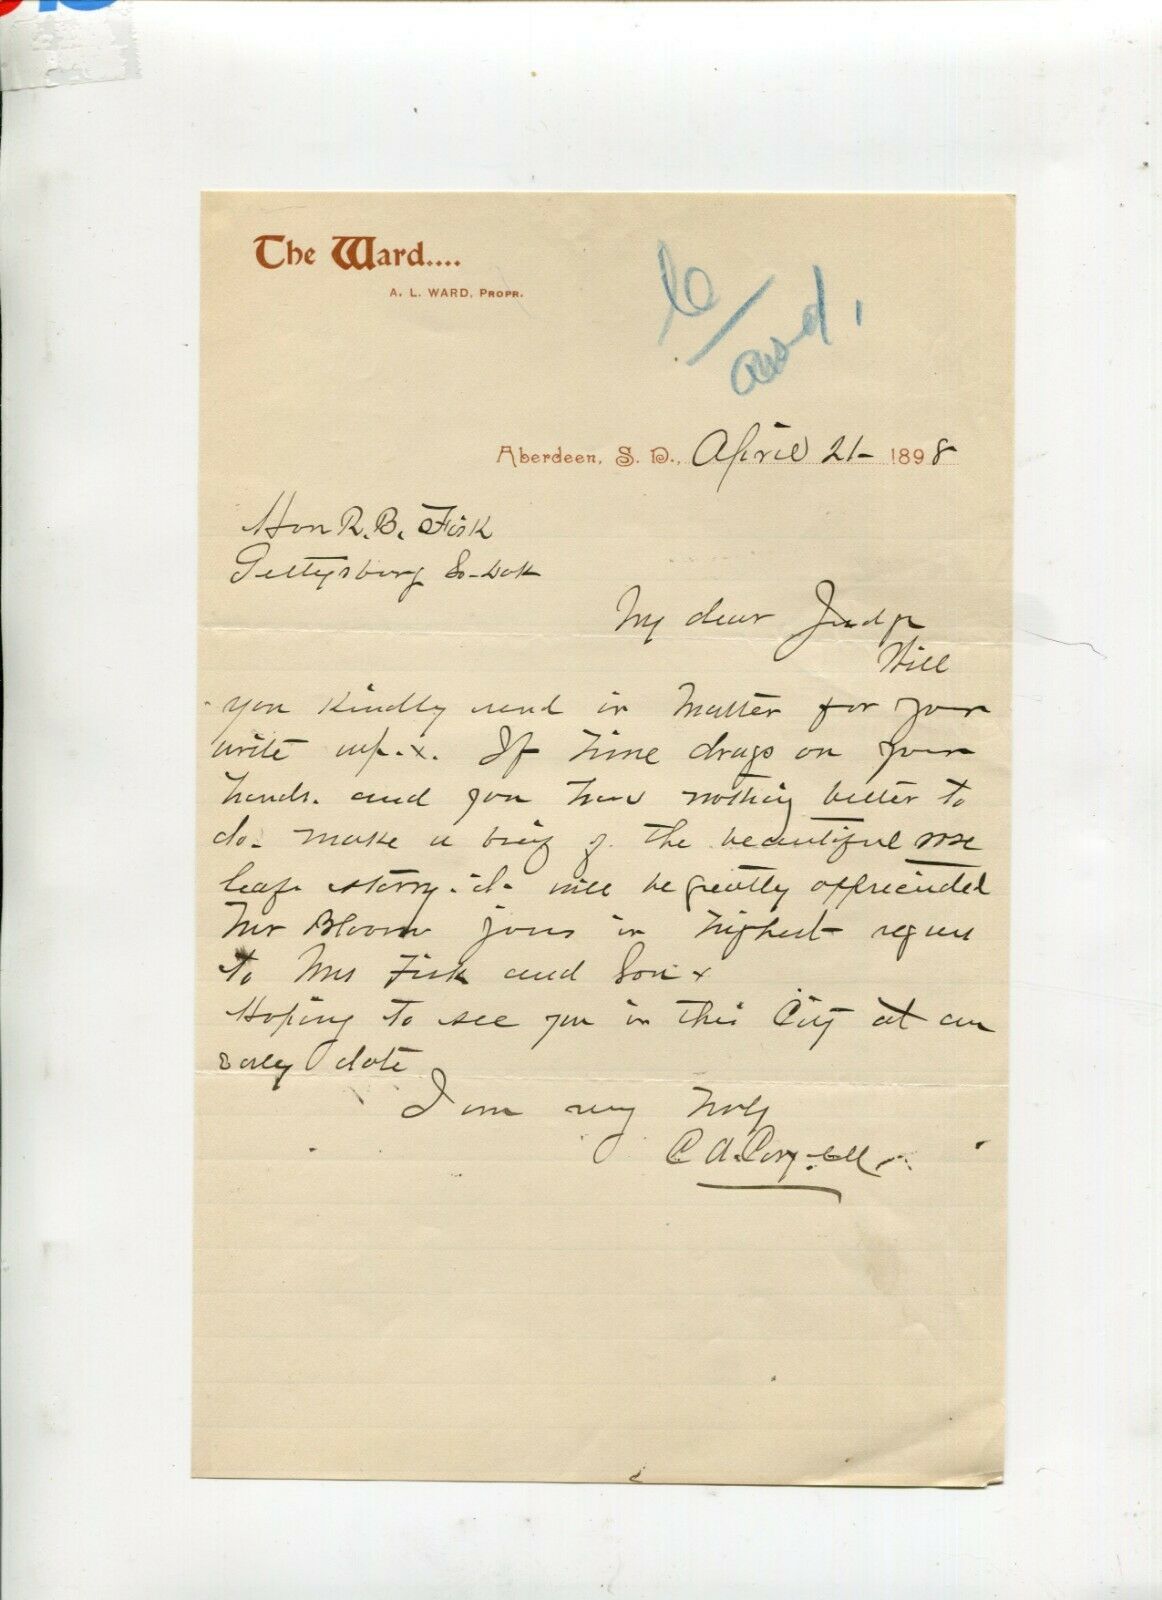 The Ward....
A. L. WARD, PROPR.
Aberdeen, S. D., April 21- 1898
Hon R. B. Fisk
Gettysburg So-Dak
My dear Judge
Will
you kindly send in matter for your
write up.x. If time drags on your
hands. and you have nothing better to
do- make a brief of the beautiful rose
leaf story. it. will be greatly appreciated
Mr Bloom joins in highest regard
to Mrs Fisk and Son x
Hoping to see you in this City at an
early date
I am very truly
C A. Coryell